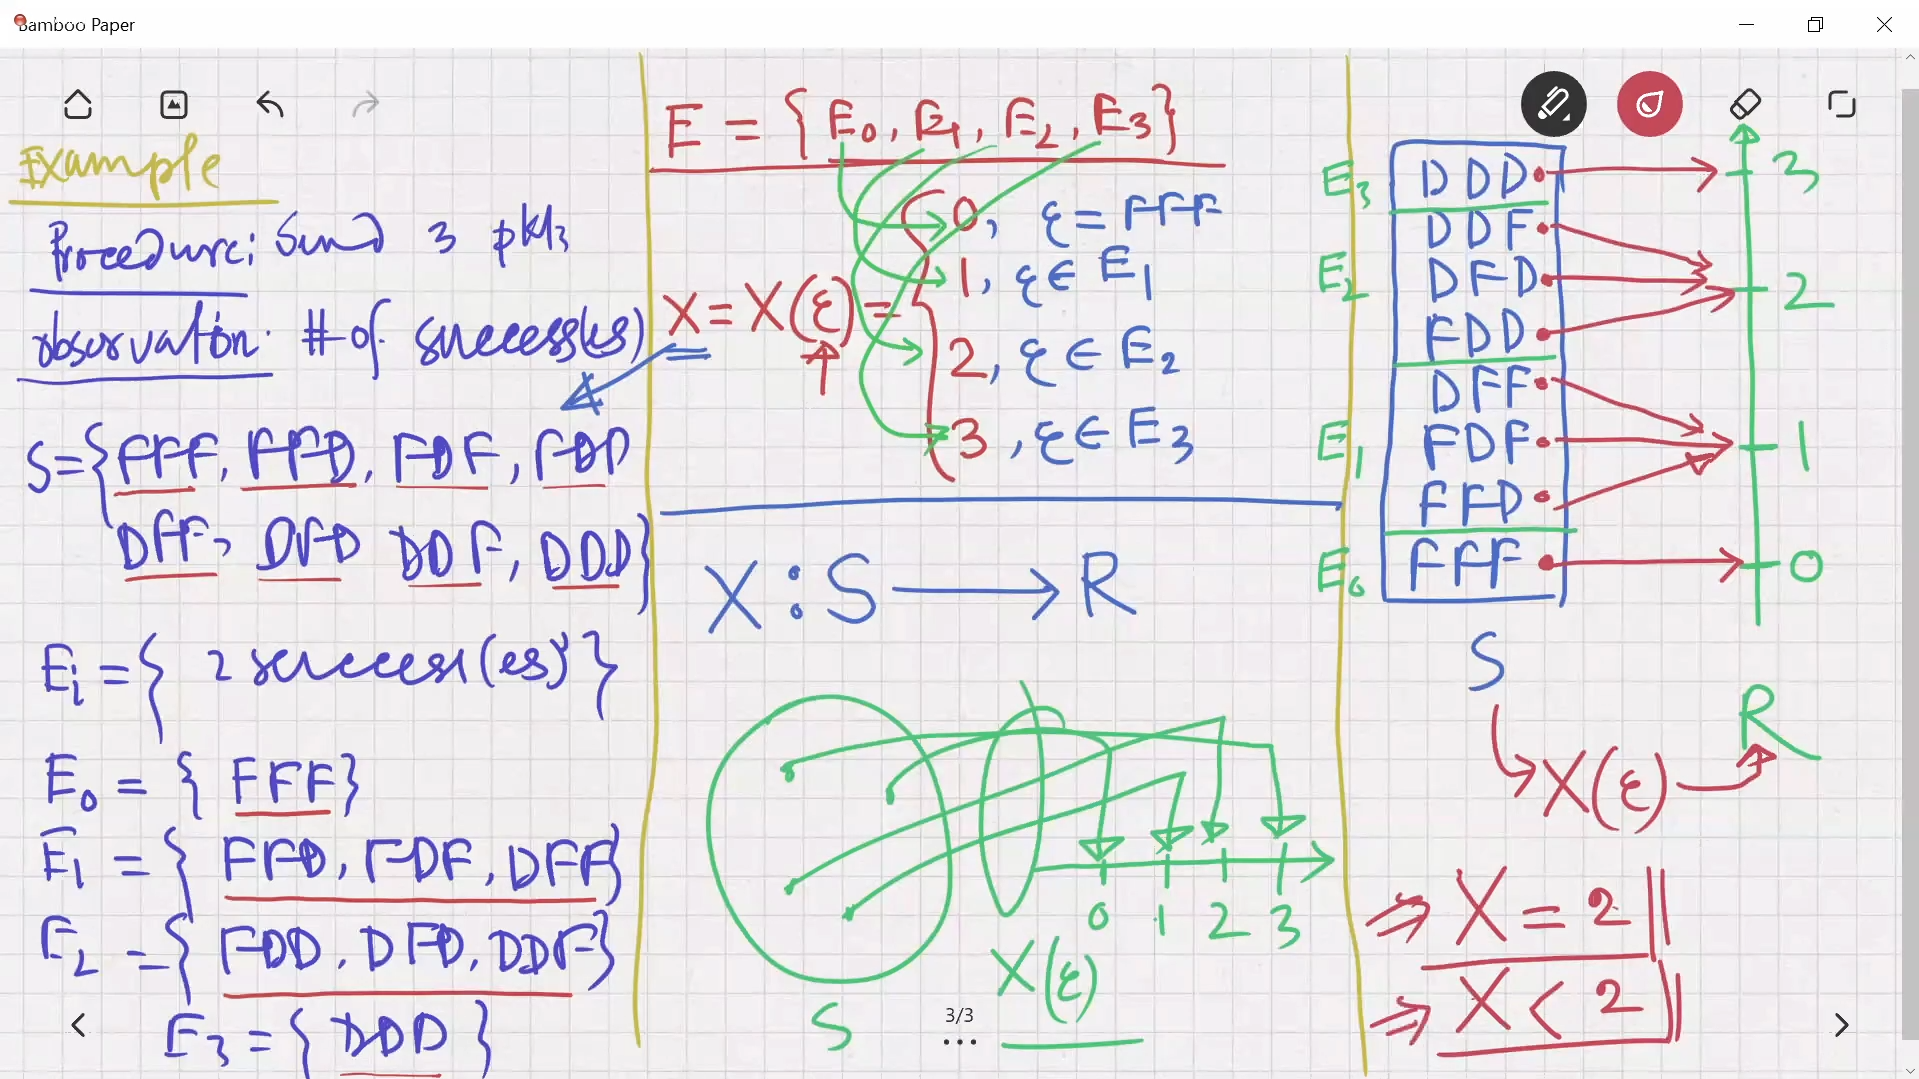 Bamboo Paper
Example
Procedure: Send 3 pkts
observation: # of success(es)
S={FFF, FFD, FDF, FDD
DFF, DFD DDF, DDD}
Ei = { i success(es) }
E0 = { FFF}
E1 = { FFD, FDF, DFF}
E2 = { FDD, DFD, DDF}
E3 = { DDD }
E = { E0, E1, E2, E3}
X = X(ξ) = { 0, ξ = FFF
1, ξ ∈ E1
2, ξ ∈ E2
3, ξ ∈ E3
X : S → R
0 1 2 3
X(ξ)
S
3/3
E3 DDD 3
DDF
E2 DFD 2
FDD
DFF
E1 FDF 1
FFD
E0 FFF 0
S
R
X(ξ)
⇒ X = 2
⇒ X < 2